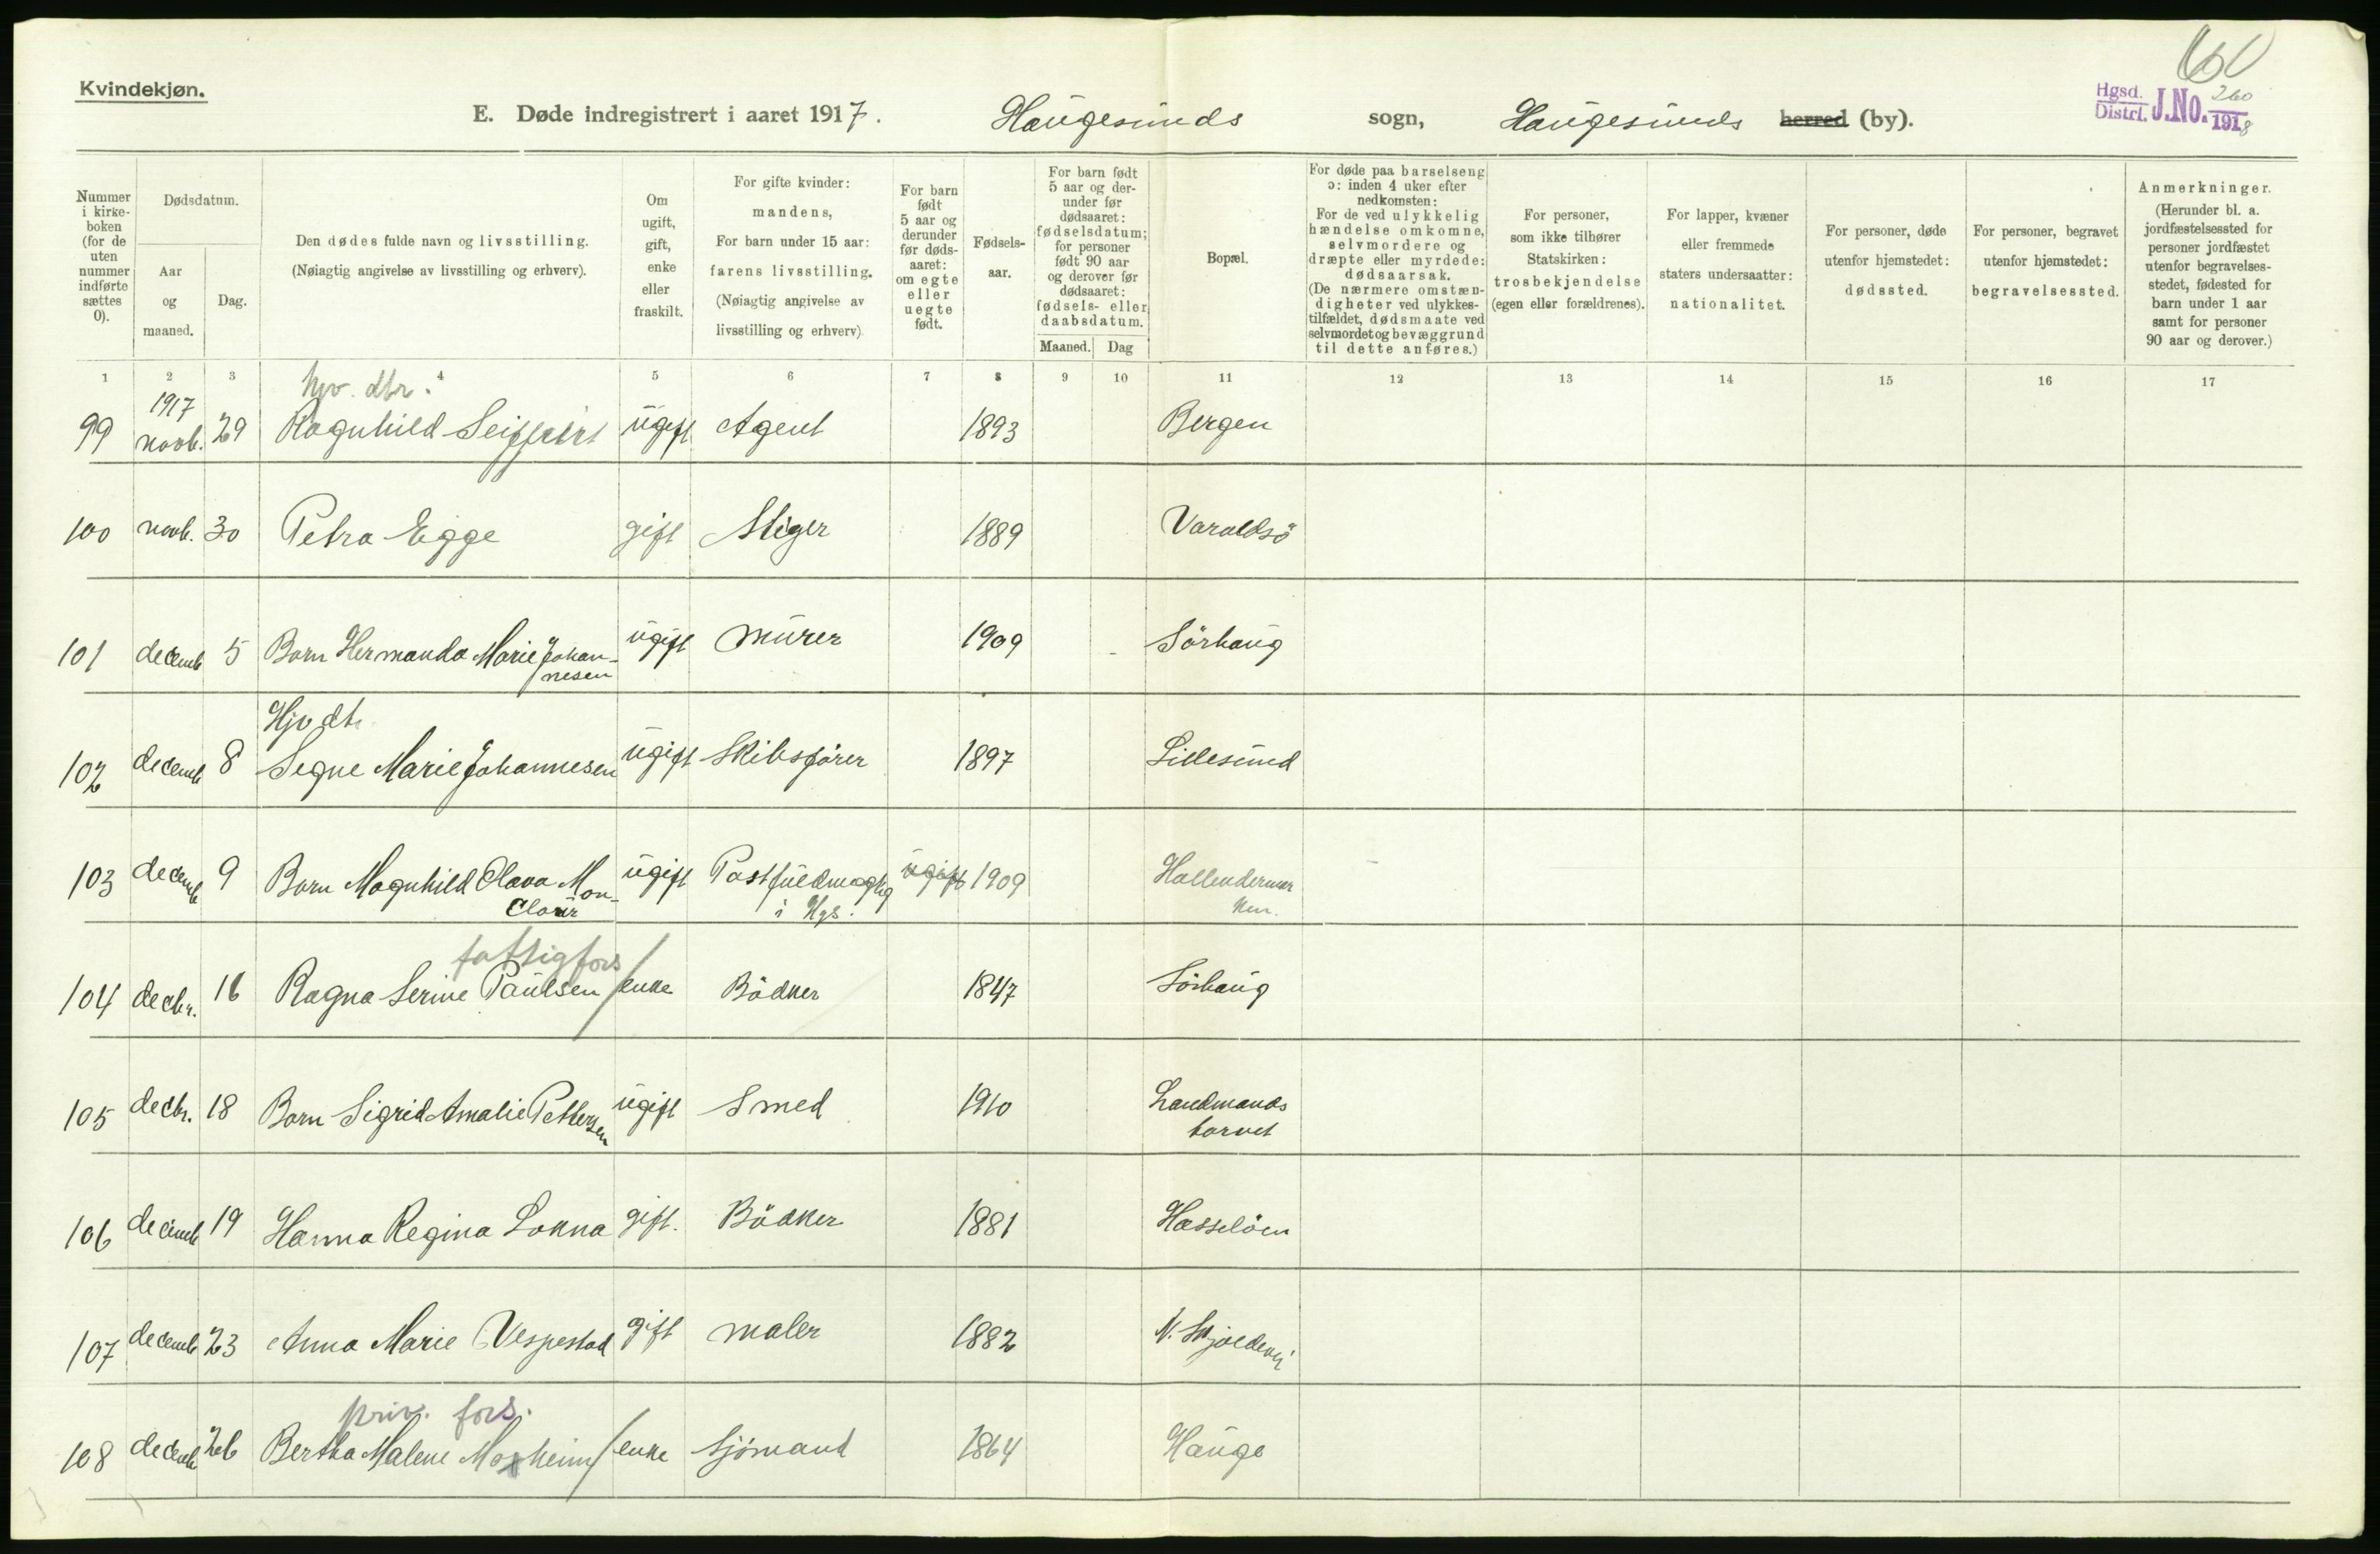 Kvindekjøn.
E. Døde indregistrert i aaret 1917. Haugesunds sogn, Haugesunds herred (by).
Hgsd. Distrl. J.No. 260 1918
Nummer i kirkeboken (for de uten nummer indførte sættes 0).
Dødsdatum.
Aar og maaned.
Dag.
Den dødes fulde navn og livsstilling.
(Nøiagtig angivelse av livsstilling og erhverv).
Om ugift, gift, enke eller fraskilt.
For gifte kvinder: mandens,
For barn under 15 aar: farens livsstilling.
(Nøiagtig angivelse av livsstilling og erhverv)
For barn født 5 aar og derunder før dødsaaret: om egte eller uegte født.
Fødselsaar.
For barn født 5 aar og derunder før dødsaaret: fødselsdatum; for personer født 90 aar og derover før dødsaaret: fødsels- eller daabsdatum.
Maaned. Dag
Bopæl.
For døde paa barselseng ɔ: inden 4 uker efter nedkomsten: For de ved ulykkelig hændelse omkomne, selvmordere og dræpte eller myrdede: dødsaarsak. (De nærmere omstændigheter ved ulykkestilfældet, dødsmaate ved selvmordet og bevæggrund til dette anføres.)
For personer, som ikke tilhører Statskirken: trosbekjendelse (egen eller forældrenes).
For lapper, kvæner eller fremmede staters undersaatter: nationalitet.
For personer, døde utenfor hjemstedet: dødssted.
For personer, begravet utenfor hjemstedet: begravelsessted.
Anmerkninger. (Herunder bl. a. jordfæstelsessted for personer jordfæstet utenfor begravelsesstedet, fødested for barn under 1 aar samt for personer 90 aar og derover.)
1 2 3 4 5 6 7 8 9 10 11 12 13 14 15 16 17
hjv. dtr.
99 1917 novb. 29 Ragnhild ugift Agent 1893 Bergen
100 novb. 30 Petra Egge gift Stiger 1889 Varaldsö
101 decemb 5 Barn Hermanda Marie Johan-
nesen ugift murer 1909 Sörhaug
Hjv dtr
102 decemb 8 Segne Marie Johannesen ugift Skibsförer 1897 Lillesund
103 decemb 9 Barn Magnhild Olava Mon-
Clair ugift Postfuldmægtig i Hgs. ugift 1909
fattigfors
104 decbr. 16 Ragna Serine Paulsen / enke Bödker 1847 Sörhaug
105 decbr. 18 Barn Sigrid Amalie Pettersen ugift Smed 1910 Landmands
torvet
106 decemb 19 Hanna Regina Lokna gift. Bödker 1881 Hasselöen
107 decemb 23 Anna Marie Vespestad gift maler 1882 N. Skjoldevei
priv. fors.
108 decemb 26 Bertha Malene Moxheim / enke Sjömand 1864 Hauge